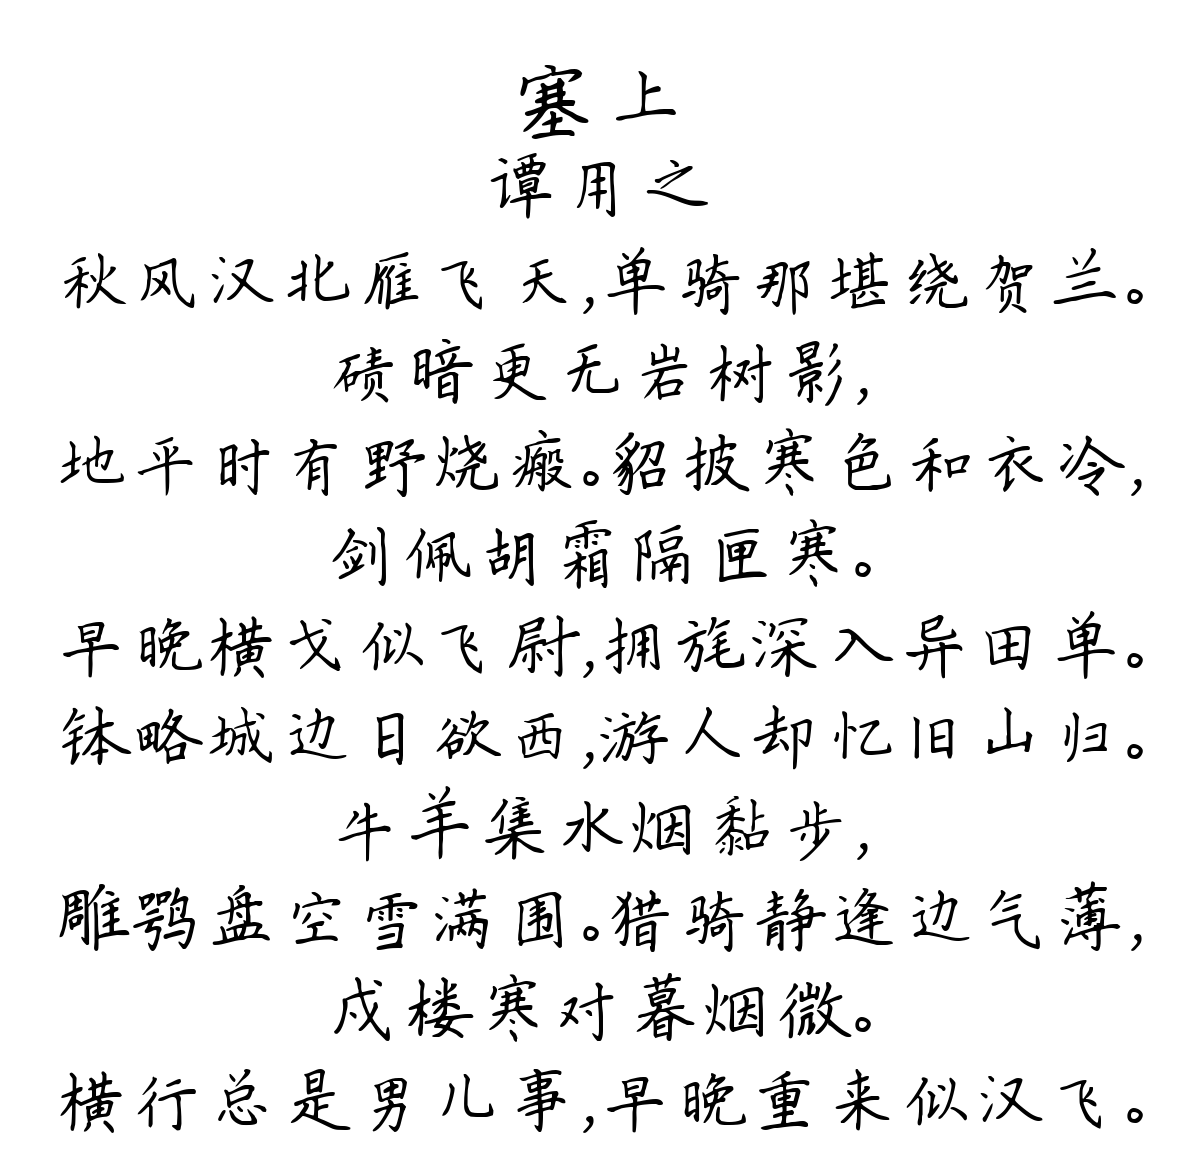 塞上
谭用之
秋风汉北雁飞天,单骑那堪绕贺兰。
碛暗更无岩树影,
地平时有野烧瘢。貂披寒色和衣冷,
剑佩胡霜隔匣寒。
早晚横戈似飞尉,拥旄深入异田单。
钵略城边日欲西,游人却忆旧山归。
牛羊集水烟黏步,
雕鹗盘空雪满围。猎骑静逢边气薄,
戍楼寒对暮烟微。
横行总是男儿事,早晚重来似汉飞。